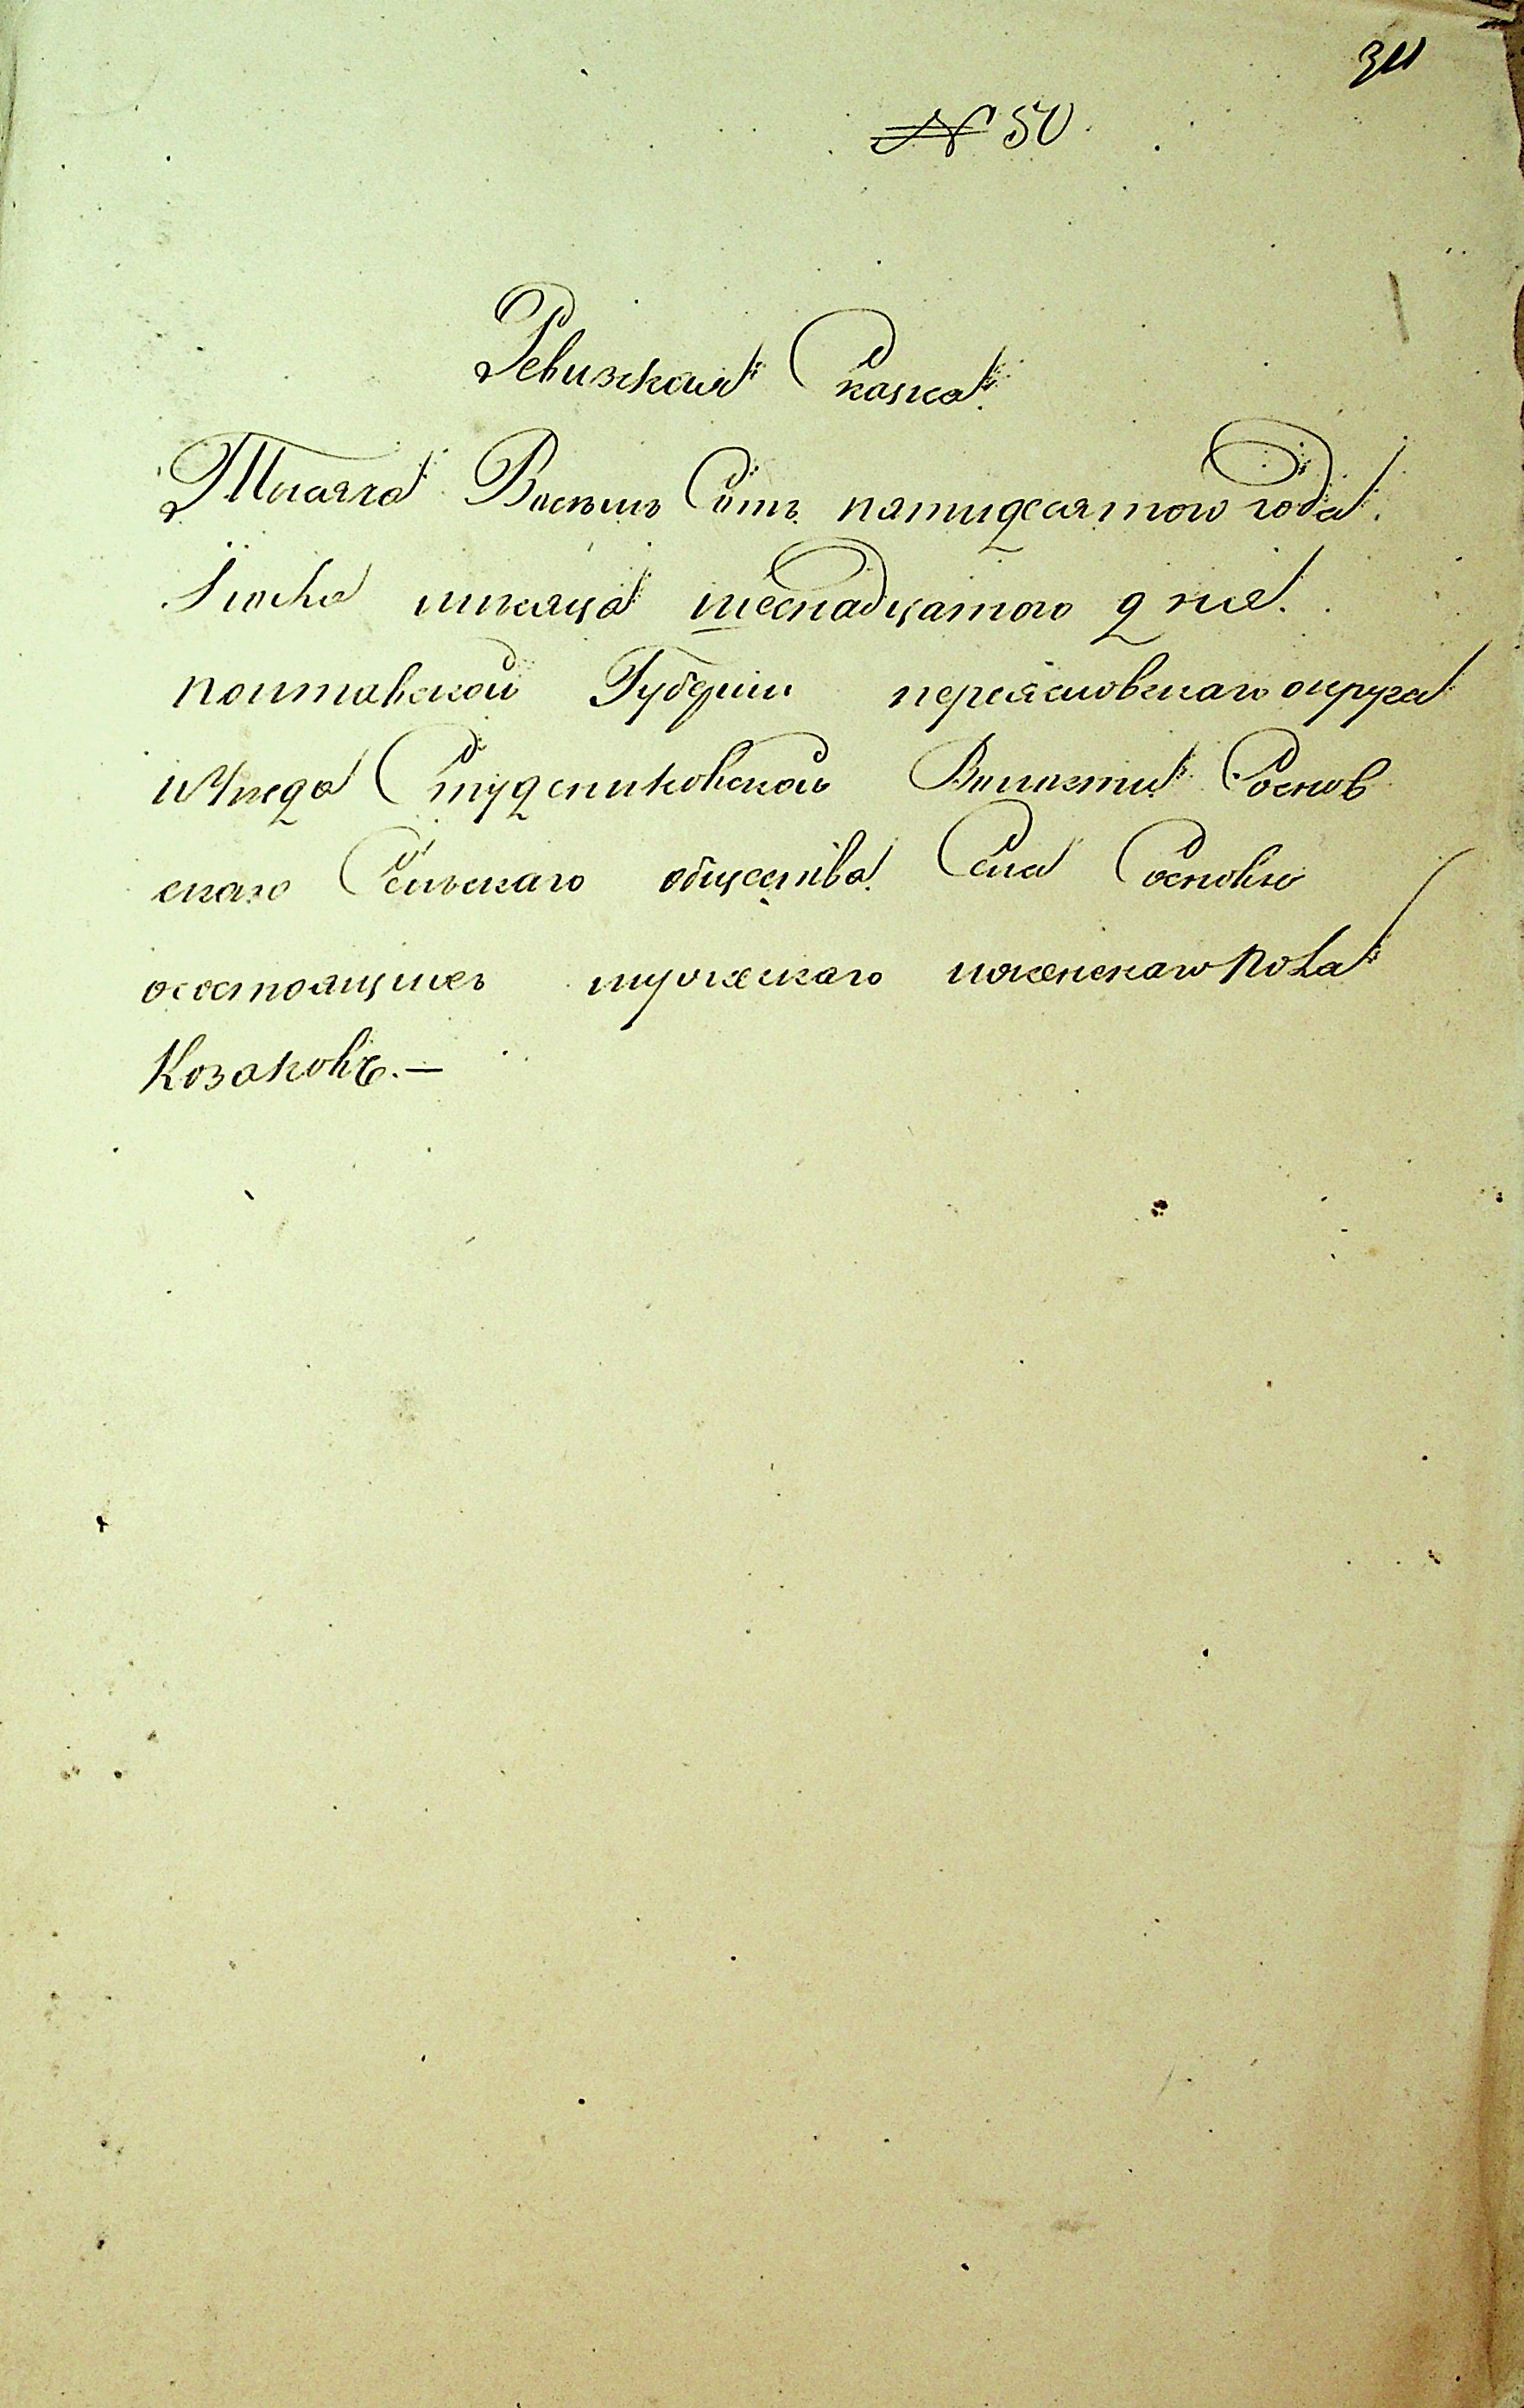 № 50
Ревизская Сказка
Тысяча Восемь Сотъ пятидесятого года.
Іюня месяца шеснадцатого дня.
полтавской Губерніи переясловскаго округа
и Уезда Студениковской Волости Соснов
скаго Сельскаго общества Села Сосновки
осостоящихъ мужескаго иженскаго пола
Козаковъ.—